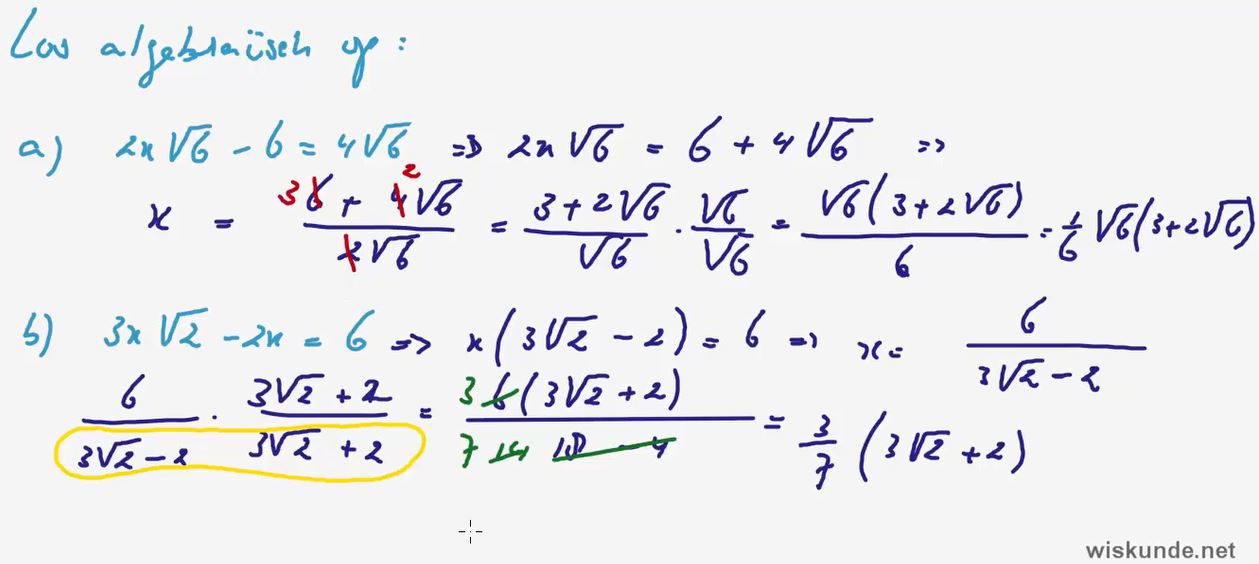 Los algebraïsch op :
a) 2x√6 - 6 = 4√6 => 2x√6 = 6 + 4√6 =>
x = (3 6 + 4 2 √6)/(2√6) = (3 + 2√6)/√6 · √6/√6 = √6(3 + 2√6)/6 = 1/6 √6(3+2√6)
b) 3x√2 - 2x = 6 => x(3√2 - 2) = 6 => x = 6/(3√2 - 2)
6/(3√2 - 2) · (3√2 + 2)/(3√2 + 2) = 3 6(3√2 + 2)/(7 14 18 - 4) = 3/7 (3√2 + 2)
wiskunde.net